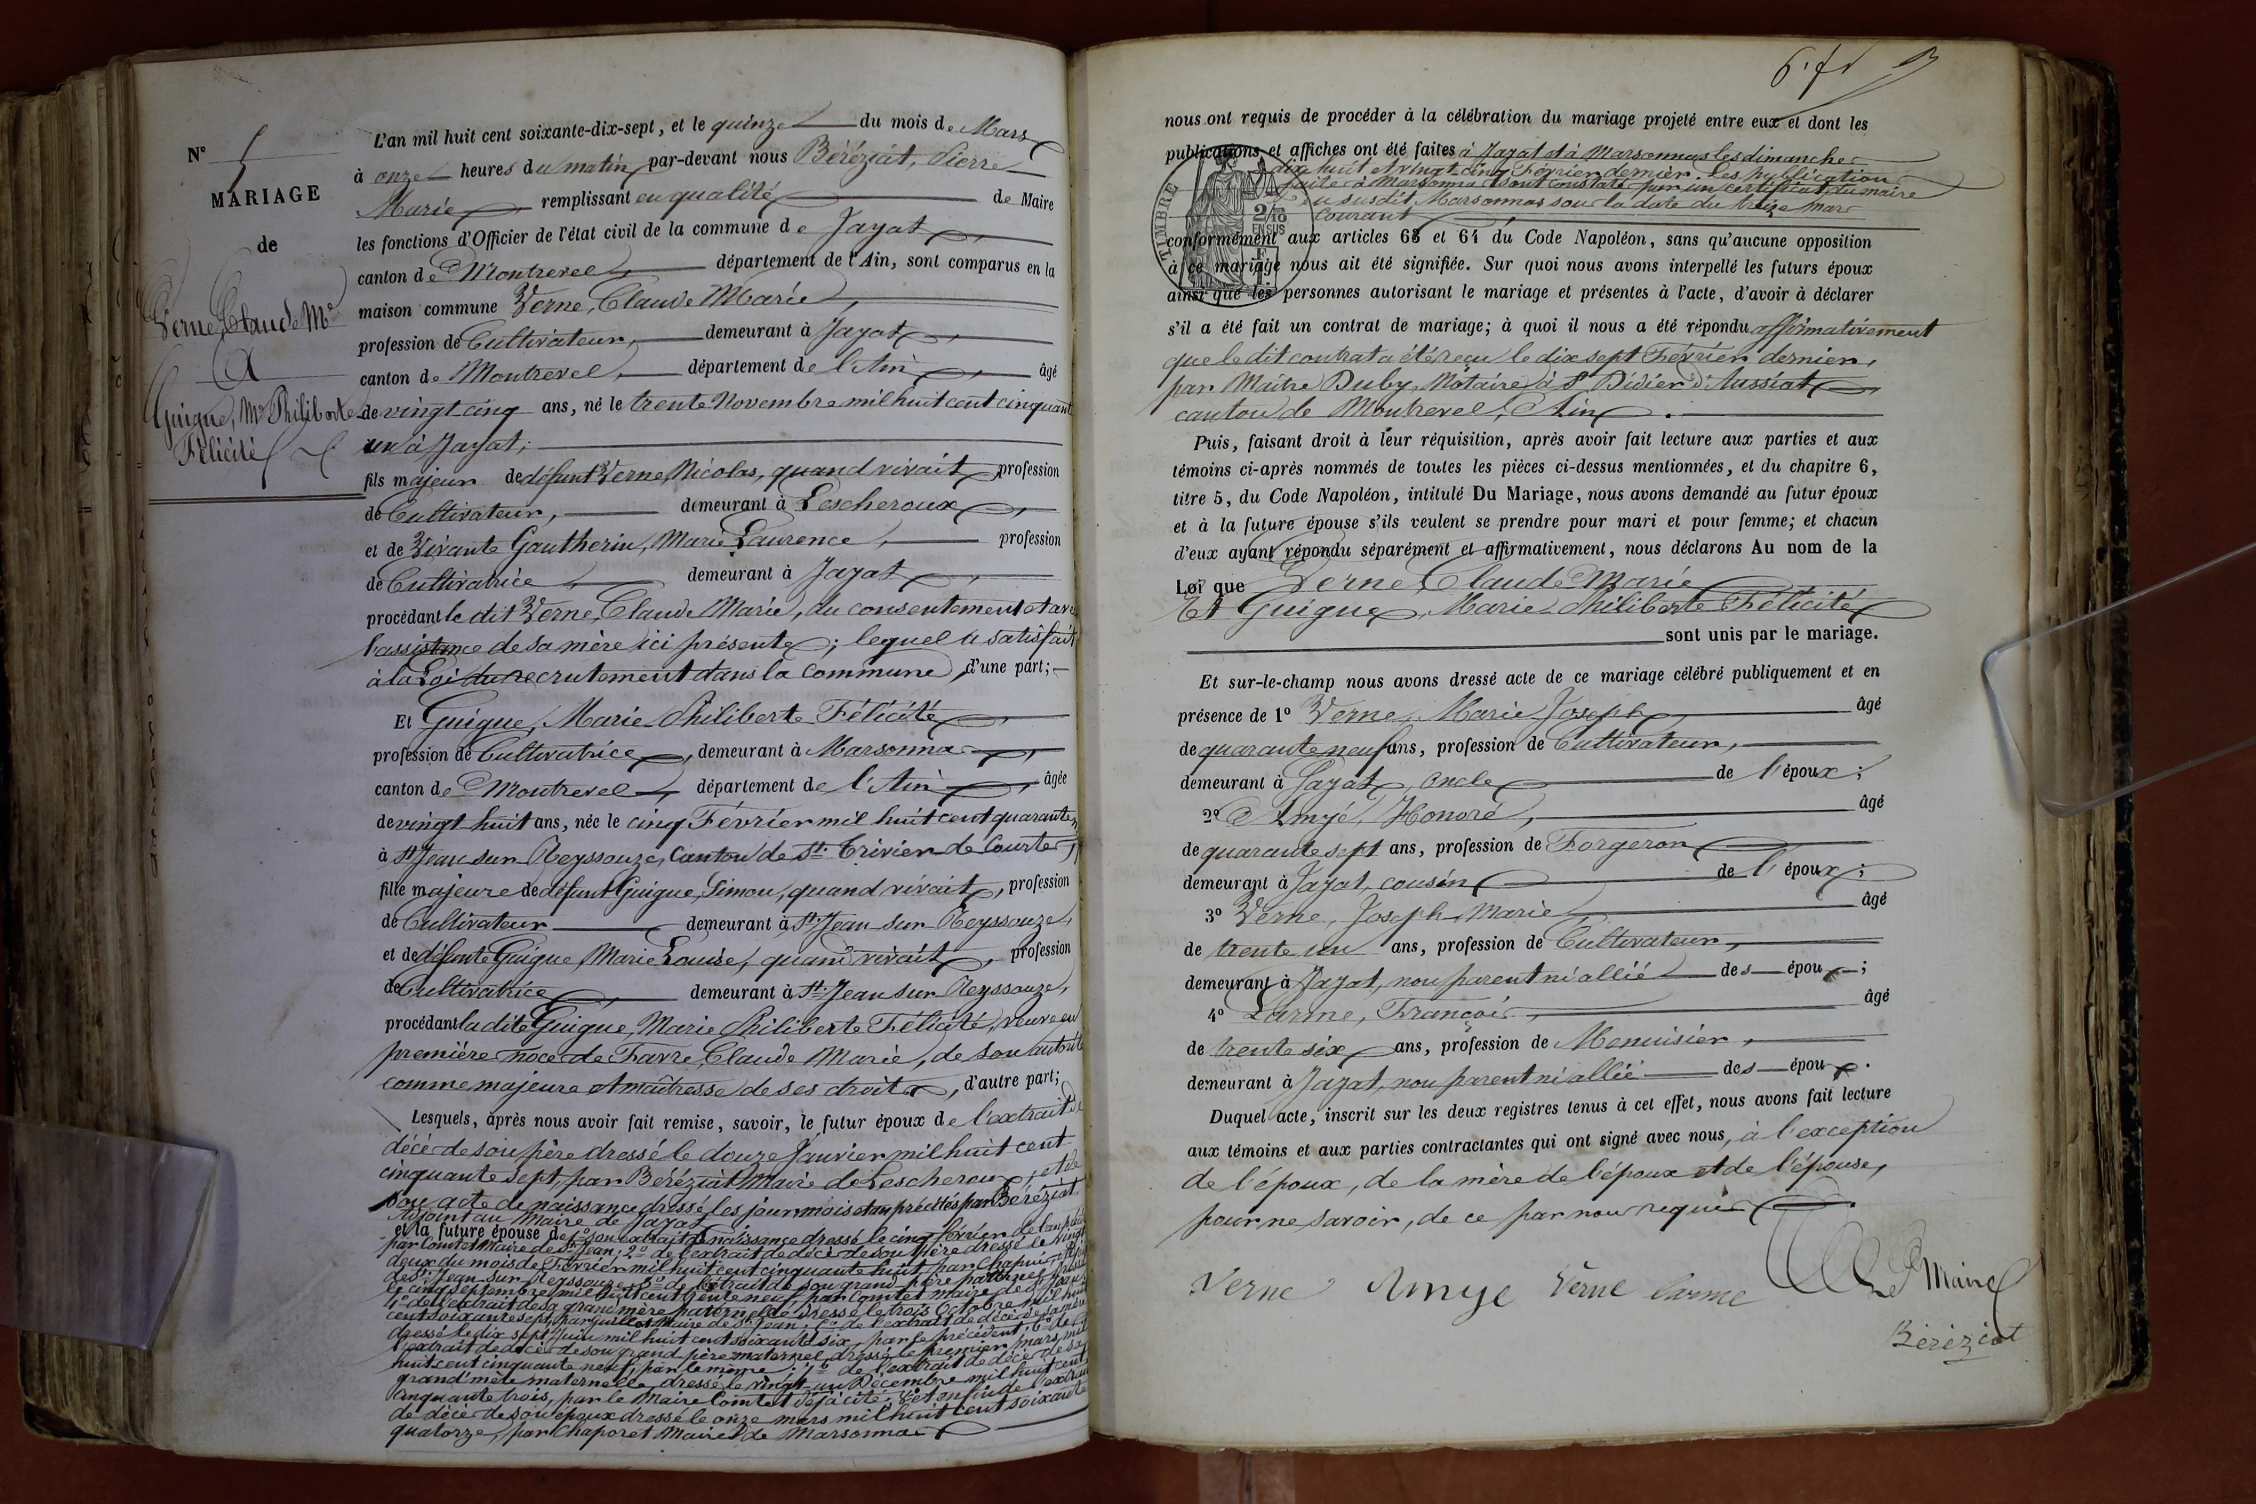 N° 5
MARIAGE
de
Verne, Claude Mie
Et
Guigue, Mie Philiberte
Félicité
L'an mil huit cent soixante-dix-sept, et le quinze du mois de Mars
à onze heures du matin, par-devant nous Béréziat, Pierre
Marie remplissant en qualité de Maire
les fonctions d'Officier de l'état civil de la commune de Jayat,
canton de Montrevel, département de l'Ain, sont comparus en la
maison commune Verne, Claude Marie,
profession de Cultivateur, demeurant à Jayat,
canton de Montrevel, département de l'Ain, âgé
de vingt cinq ans, né le trente Novembre mil huit cent cinquant
un à Jayat;
fils majeur de défunt Verne, Nicolas, quand vivait, profession
de Cultivateur, demeurant à Lescheroux,
et de vivante Gautherin, Marie Laurence, profession
de Cultivatrice, demeurant à Jayat,
procédant le dit Verne, Claude Marie, du consentement et avec
l'assistance de sa mère ici présente; lequel a satisfait
à la Loi du recrutement dans la commune, d'une part;
Et Guigue, Marie Philiberte Félicité,
profession de Cultivatrice, demeurant à Marsonnas,
canton de Montrevel, département de l'Ain, âgée
de vingt huit ans, née le cinq Février mil huit cent quarante
à St Jean sur Reyssouze, Canton de St Trivier de Courtes,
fille majeure de défunt Guigue, Simon, quand vivait, profession
de Cultivateur demeurant à St Jean sur Reyssouze,
et de défunte Guigue, Marie Louise, quand vivait, profession
de Cultivatrice, demeurant à St Jean sur Reyssouze,
procédant la dite Guigue, Marie Philiberte Félicité, veuve en
première noce de Favre, Claude Marie, de son autorité
comme majeure et maîtresse de ses droits, d'autre part;
Lesquels, après nous avoir fait remise, savoir, le futur époux de l'extrait de
décès de son père dressé le douze Janvier mil huit cent
cinquante sept, par Béréziat Maire de Lescheroux; et de
son acte de naissance dressé les jour mois et an précités par Béréziat
Adjoint au Maire de Jayat
et la future épouse de 1° son extrait de naissance dressé le cinq février de l'an précité
par Comtet Maire de St Jean; 2° de l'extrait de décès de son père dressé le vingt
deux du mois de Février mil huit cent cinquante huit, par Chapuis
de St Jean sur Reyssouze; 3° de l'extrait de son grand père paternel dressé
le cinq septembre mil huit cent trente neuf par Comtet maire de St Jean;
4° de l'extrait de sa grand mère paternelle dressé le trois Octobre mil huit
cent soixante sept, par Maire de St Jean; 5° de l'extrait de décès de sa mère
dressé le dix sept Juin mil huit cent soixante six, par le précédent; 6° de
l'extrait de décès de son grand père maternel dressé le premier mars mil
huit cent cinquante neuf, par le même; 7° de l'extrait de décès de sa
grand'mère maternelle dressé le vingt un Décembre mil huit cent
cinquante trois, par le Maire Comtet déjà cité; et enfin de l'extrait
de décès de son époux dressé le onze mars mil huit cent soixante
quatorze, par Chaporet Maire de Marsonnas
nous ont requis de procéder à la célébration du mariage projeté entre eux et dont les
publications et affiches ont été faites à Jayat et à Marsonnas les dimanches
dix huit et vingt cinq Février dernier. Les publications
faites à Marsonnas sont constaté par un certificat du maire
du susdit Marsonnas sous la date du treize mars
courant
TIMBRE
2/10
EN SUS
conformément aux articles 63 et 64 du Code Napoléon, sans qu'aucune opposition
à ce mariage nous ait été signifiée. Sur quoi nous avons interpellé les futurs époux
ainsi que les personnes autorisant le mariage et présentes à l'acte, d'avoir à déclarer
s'il a été fait un contrat de mariage; à quoi il nous a été répondu affirmativement
que le dit contrat a été reçu le dix sept Février dernier,
par Maître Duby, Notaire à St Didier d'Aussiat,
canton de Montrevel, Ain.
Puis, faisant droit à leur réquisition, après avoir fait lecture aux parties et aux
témoins ci-après nommés de toutes les pièces ci-dessus mentionnées, et du chapitre 6,
titre 5, du Code Napoléon, intitulé Du Mariage, nous avons demandé au futur époux
et à la future épouse s'ils veulent se prendre pour mari et pour femme; et chacun
d'eux ayant répondu séparément et affirmativement, nous déclarons Au nom de la
Loi que Verne, Claude Marie
Et Guigue, Marie Philiberte Félicité
sont unis par le mariage.
Et sur-le-champ nous avons dressé acte de ce mariage célébré publiquement et en
présence de 1° Verne, Marie Joseph, âgé
de quarante neuf ans, profession de Cultivateur,
demeurant à Jayat, oncle de l'époux;
2° Amyé, Honoré, âgé
de quarante sept ans, profession de Forgeron
demeurant à Jayat, cousin de l'époux;
3° Verne, Joseph Marie âgé
de trente un ans, profession de Cultivateur,
demeurant à Jayat, non parent ni allié des époux;
4° Larme, François, âgé
de trente six ans, profession de Menuisier,
demeurant à Jayat, non parent ni allié des époux.
Duquel acte, inscrit sur les deux registres tenus à cet effet, nous avons fait lecture
aux témoins et aux parties contractantes qui ont signé avec nous, à l'exception
de l'époux, de la mère de l'époux et de l'épouse,
pour ne savoir, de ce par nous requis.
Verne Amyé Verne Larme Le Maire
Béréziat